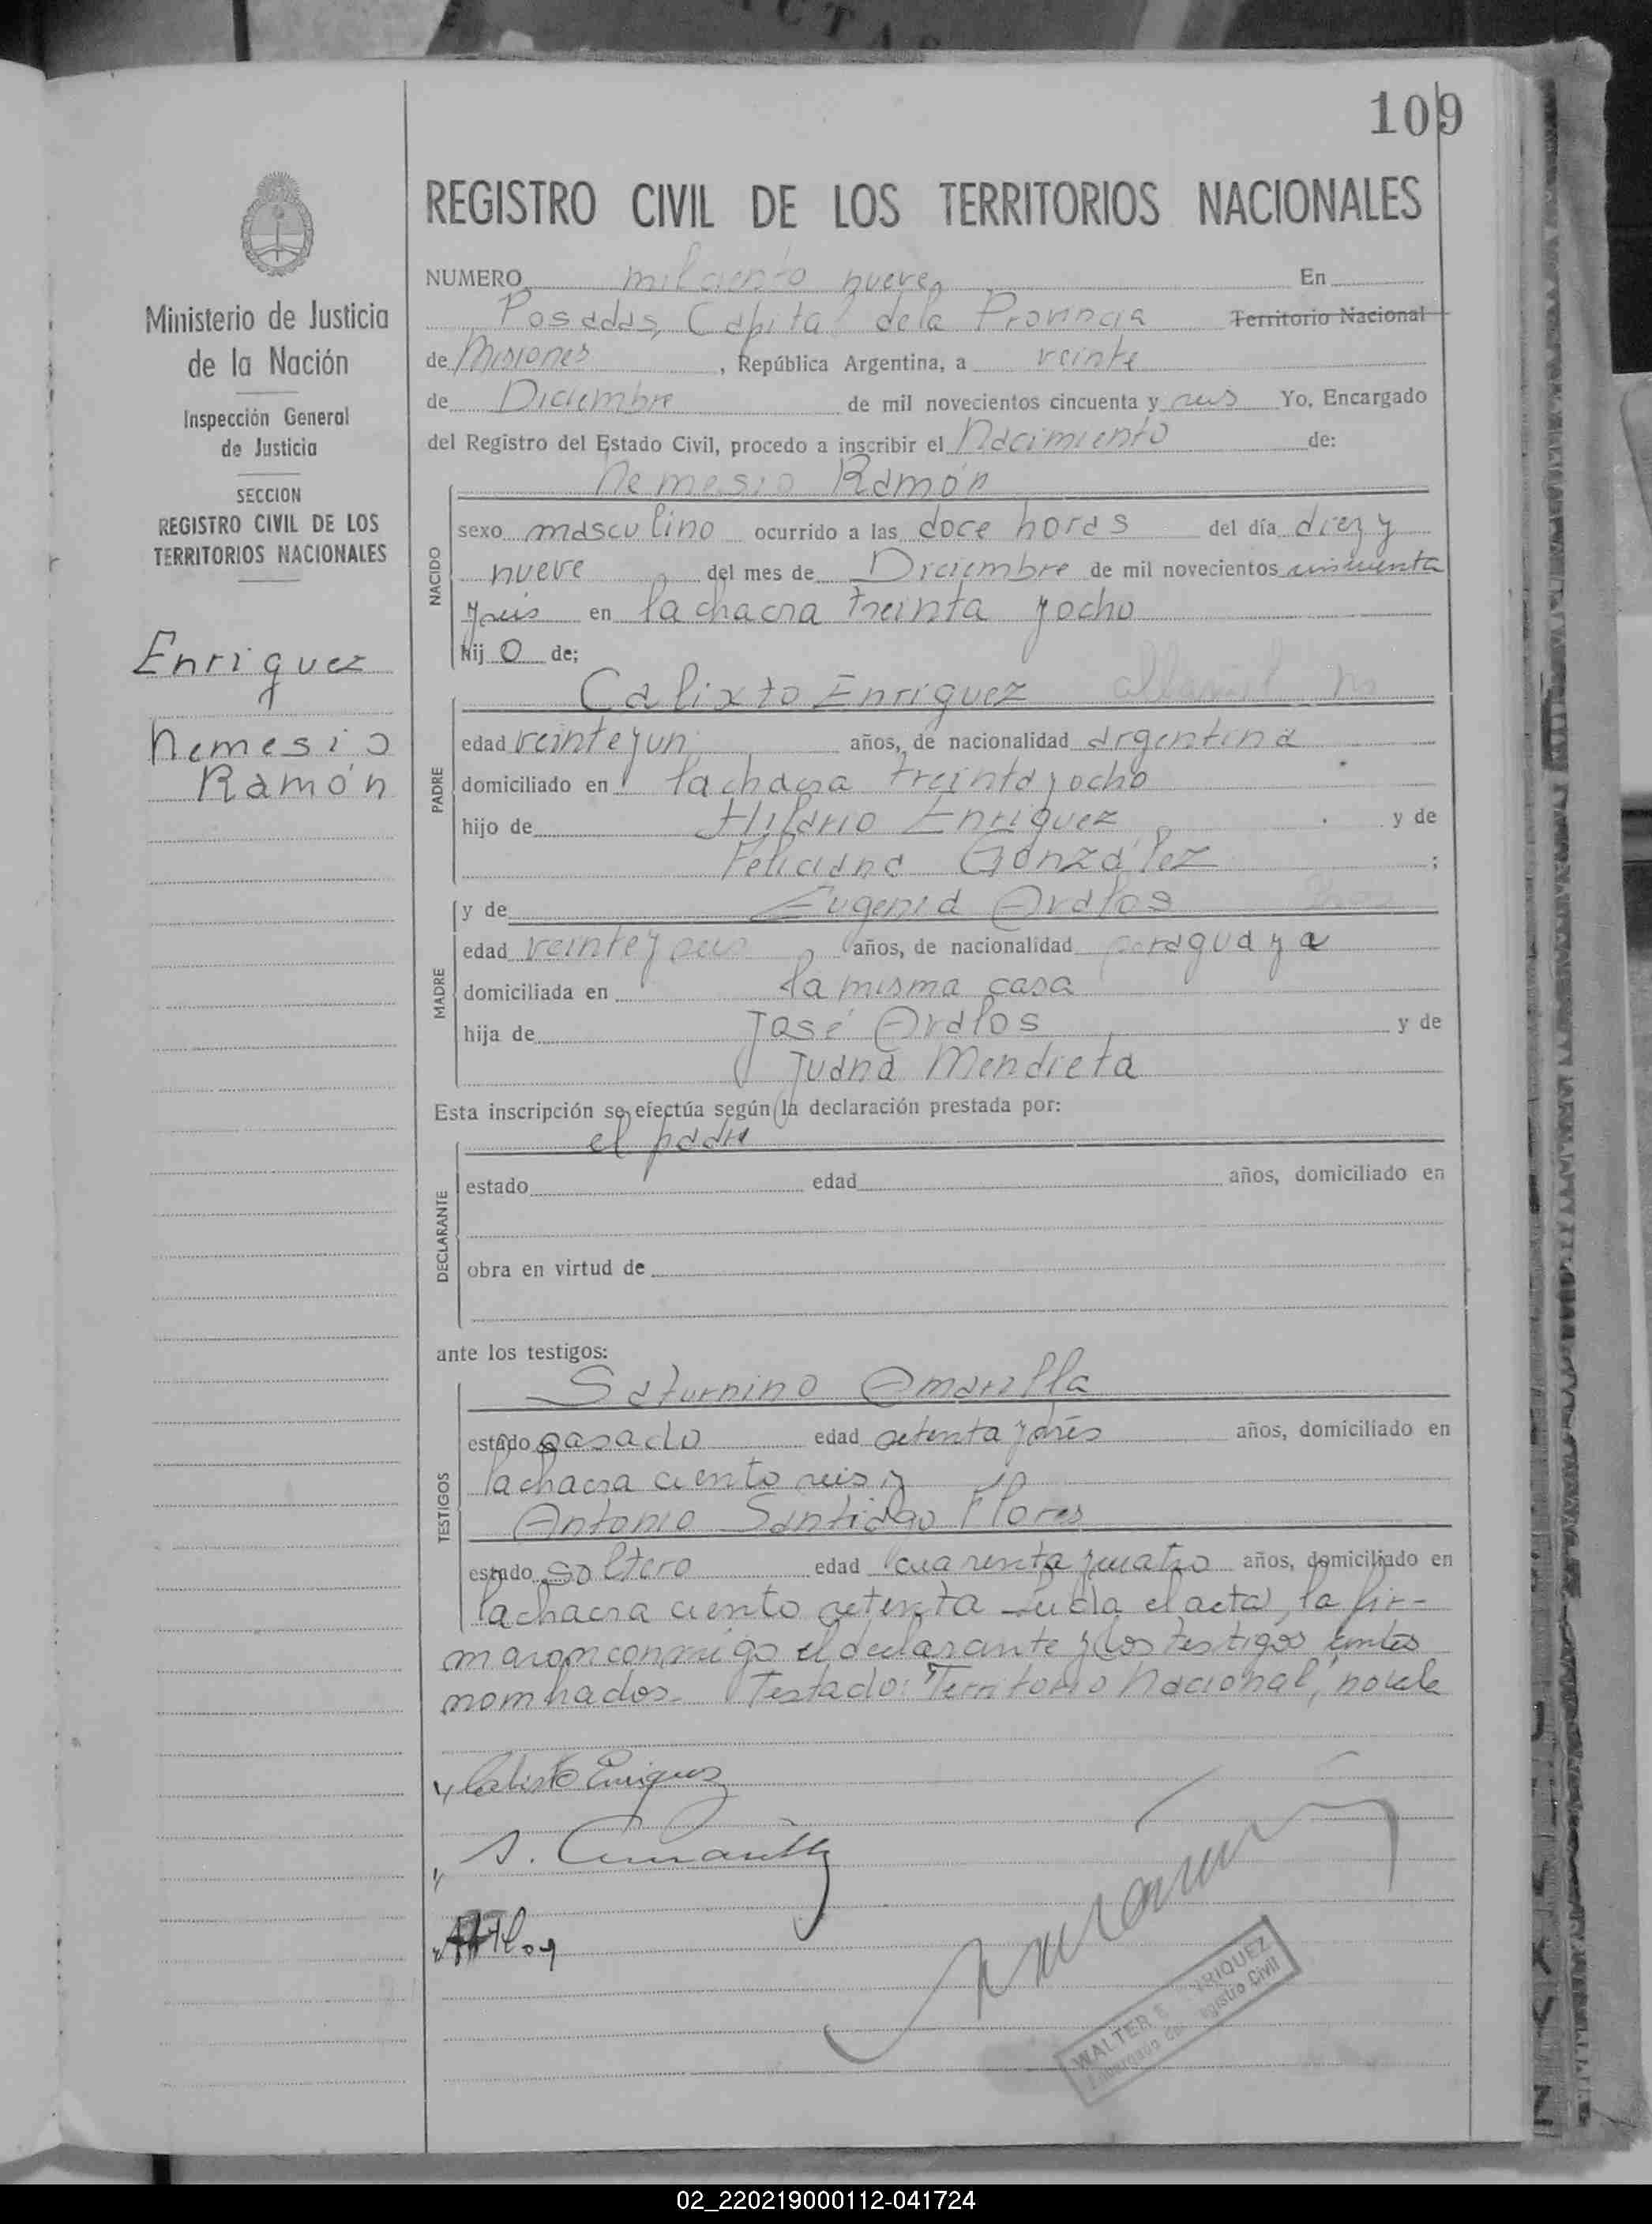 109
REGISTRO CIVIL DE LOS TERRITORIOS NACIONALES
Ministerio de Justicia
de la Nación
Inspección General
de Justicia
SECCION
REGISTRO CIVIL DE LOS
TERRITORIOS NACIONALES
Enriquez
Nemesio
Ramón
NUMERO mil ciento nueve En
Posadas, Capital de la Provincia Territorio Nacional
de Misiones, República Argentina, a veinte
de Diciembre de mil novecientos cincuenta y seis Yo, Encargado
del Registro del Estado Civil, procedo a inscribir el Nacimiento de:
Nemesio Ramón
NACIDO
sexo masculino ocurrido a las doce horas del día diez y
nueve del mes de Diciembre de mil novecientos cincuenta
y seis en la chacra treinta y ocho
hij o de:
Calixto Enriquez
PADRE
edad veinte y un años, de nacionalidad argentina
domiciliado en la chacra treinta y ocho
hijo de Hilario Enriquez y de
Feliciana González ;
y de Eugenia Avalos
MADRE
edad veinte y seis años, de nacionalidad paraguaya
domiciliada en la misma casa
hija de José Avalos y de
Juana Mendieta
Esta inscripción se efectúa según la declaración prestada por:
el padre
DECLARANTE
estado edad años, domiciliado en
obra en virtud de
ante los testigos:
Saturnino Amarilla
TESTIGOS
estado casado edad setenta y dos años, domiciliado en
la chacra ciento seis y
Antonio Santiago Flores
estado soltero edad cuarenta y cuatro años, domiciliado en
la chacra ciento setenta Leida el acta, la fir-
maron conmigo el declarante y los testigos antes
nombrados. Testado: "Territorio Nacional", no vale
Calisto Enriquez
S. Amarilla
WALTER E RIQUEZ
Encargado del Registro Civil
02_220219000112-041724